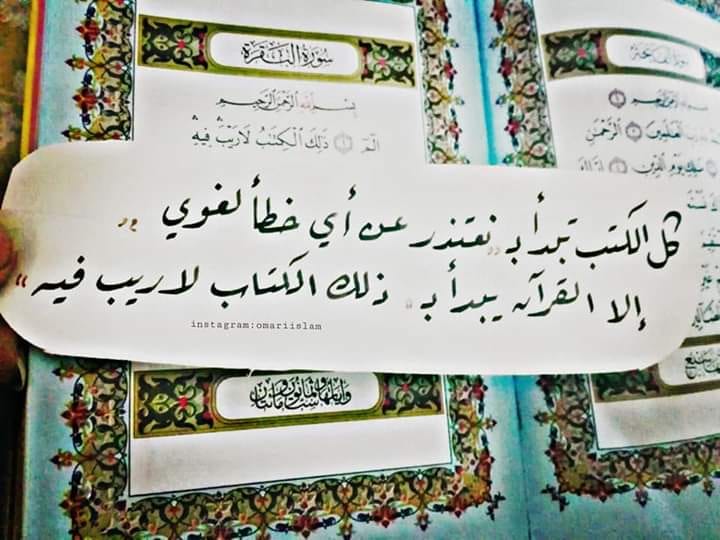 سورة البقرة
بسم الله الرحمن الرحيم
الم ١ ذلك الكتب لا ريب فيه
كل الكتب تبدأ بـ "نعتذر عن أي خطأ لغوي"
إلا القرآن يبدأ بـ "ذلك الكتاب لا ريب فيه"
instagram:omariislam
وآياتها ستّ وثمانون ومائتان
الرحمن الرحيم ١
العلمين ٢ الرحمن
ملك يوم الدين